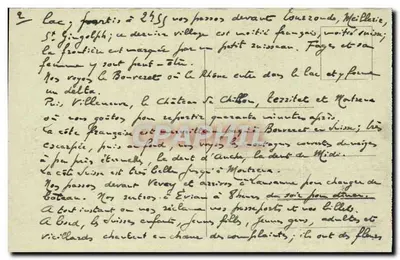 2
lac, partis à 2h55 nous passons devant Tourronde, Meillerie,
St Gingolph; ce dernier village est moitié français, moitié suisse;
la frontière est marquée par un petit ruisseau. Fayes et sa
femme y sont peut-être.
Nous voyons le Bouveret où le Rhône entre dans le lac et y forme
un delta.
Puis Villeneuve, le Château de Chillon, Territet et Montreux
où nous goûtons pour repartir quarante minutes après.
La côte française est Bouveret en Suisse; très
escarpée, puis au fond, on voyait les montagnes couvertes de neiges
à peu près éternelles, la dent d'Oche, la dent du Midi.
La côte Suisse est très belle jusqu'à Montreux.
Nous passons devant Vevey et arrivons à Lausanne pour changer de
bateau. Nous rentrons à Evian à 8 heures du soir pour dîner.
A tout instant on nous réclame nos passeports et nos billets.
A bord, les Suisses enfants, jeunes filles, jeunes gens, adultes et
vieillards chantent en chœur des complaintes; ils ont des fleurs